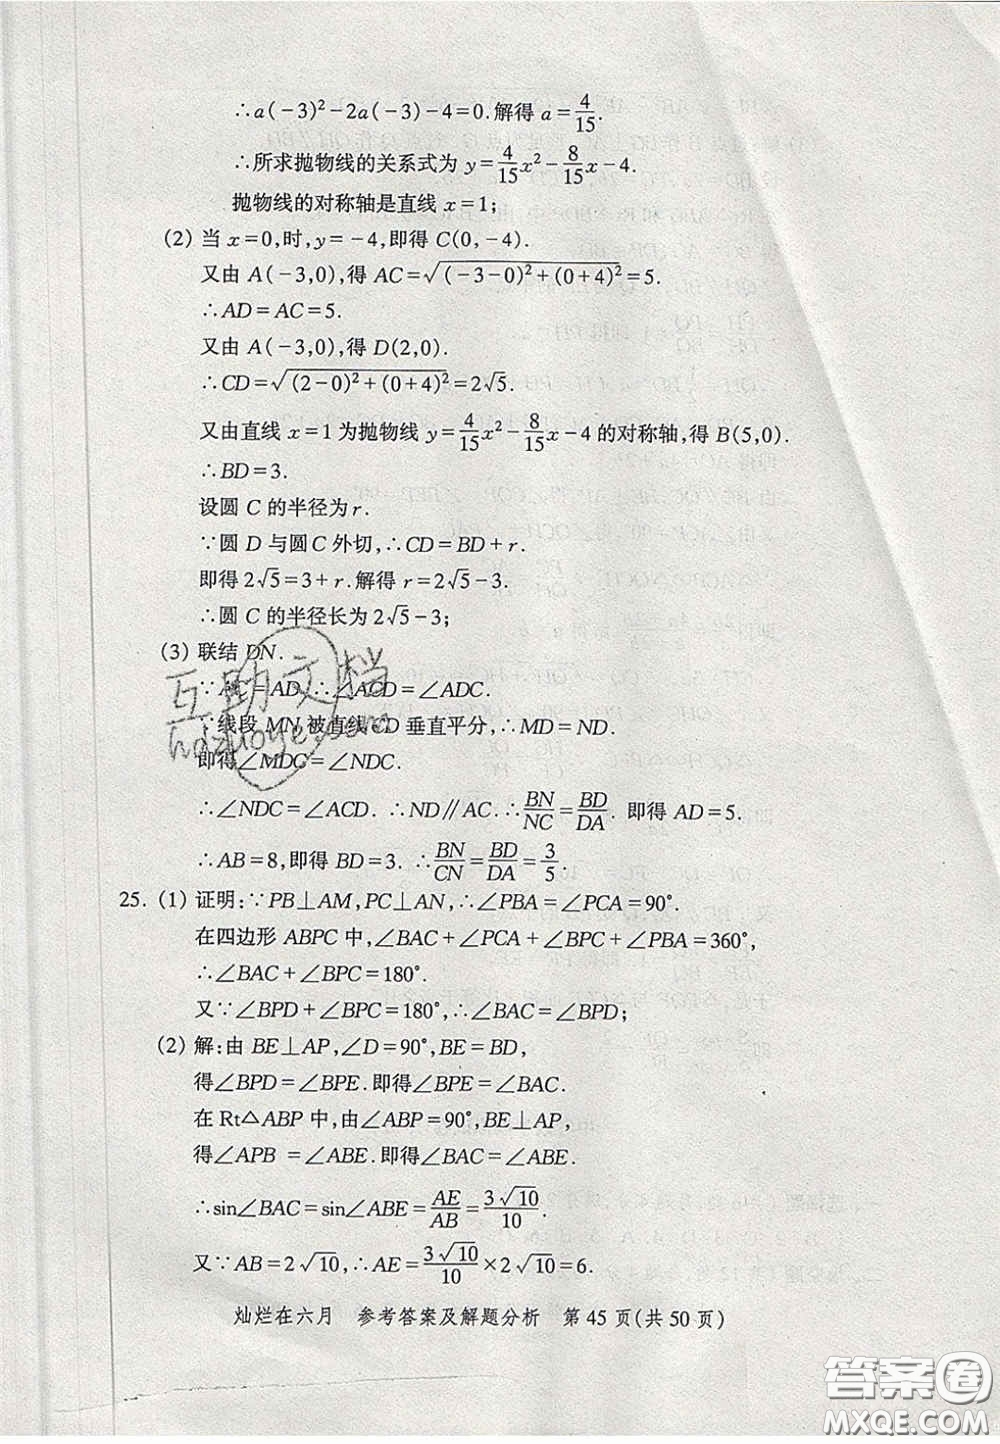 ∴a(-3)²-2a(-3)-4=0.解得a=4/15.
∴所求抛物线的关系式为 y=4/15x²-8/15x-4.
抛物线的对称轴是直线 x=1;
(2) 当 x=0,时,y=-4,即得 C(0,-4).
又由 A(-3,0),得 AC=√((-3-0)²+(0+4)²)=5.
∴AD=AC=5.
又由 A(-3,0),得 D(2,0).
∴CD=√((2-0)²+(0+4)²)=2√5.
又由直线 x=1 为抛物线 y=4/15x²-8/15x-4 的对称轴,得 B(5,0).
∴BD=3.
设圆 C 的半径为r.
∵圆 D 与圆C 外切,∴CD=BD+r.
即得2√5=3+r.解得 r=2√5-3.
∴圆 C 的半径长为 2√5-3;
(3) 联结 DN.
∵AC=AD,∴∠ACD=∠ADC.
∵线段 MN 被直线 CD 垂直平分,∴MD=ND.
即得∠MDC=∠NDC.
∴∠NDC=∠ACD. ∴ND∥AC. ∴BN/NC=BD/DA. 即得 AD=5.
∴AB=8,即得 BD=3. ∴BN/CN=BD/DA=3/5.
25. (1) 证明:∵PB⊥AM,PC⊥AN,∴∠PBA=∠PCA=90°.
在四边形 ABPC 中,∠BAC+∠PCA+∠BPC+∠PBA=360°,
∴∠BAC+∠BPC=180°.
又∵∠BPD+∠BPC=180°,∴∠BAC=∠BPD;
(2) 解:由 BE⊥AP,∠D=90°,BE=BD,
得∠BPD=∠BPE.即得∠BPE=∠BAC.
在 Rt△ABP 中,由∠ABP=90°,BE⊥AP,
得∠APB=∠ABE.即得∠BAC=∠ABE.
∴sin∠BAC=sin∠ABE=AE/AB=3√10/10.
又∵AB=2√10,∴AE=3√10/10×2√10=6.
灿烂在六月 参考答案及解题分析 第 45 页(共 50 页)
互助文档
hdzuoye.com
答案圈
MXQE.COM